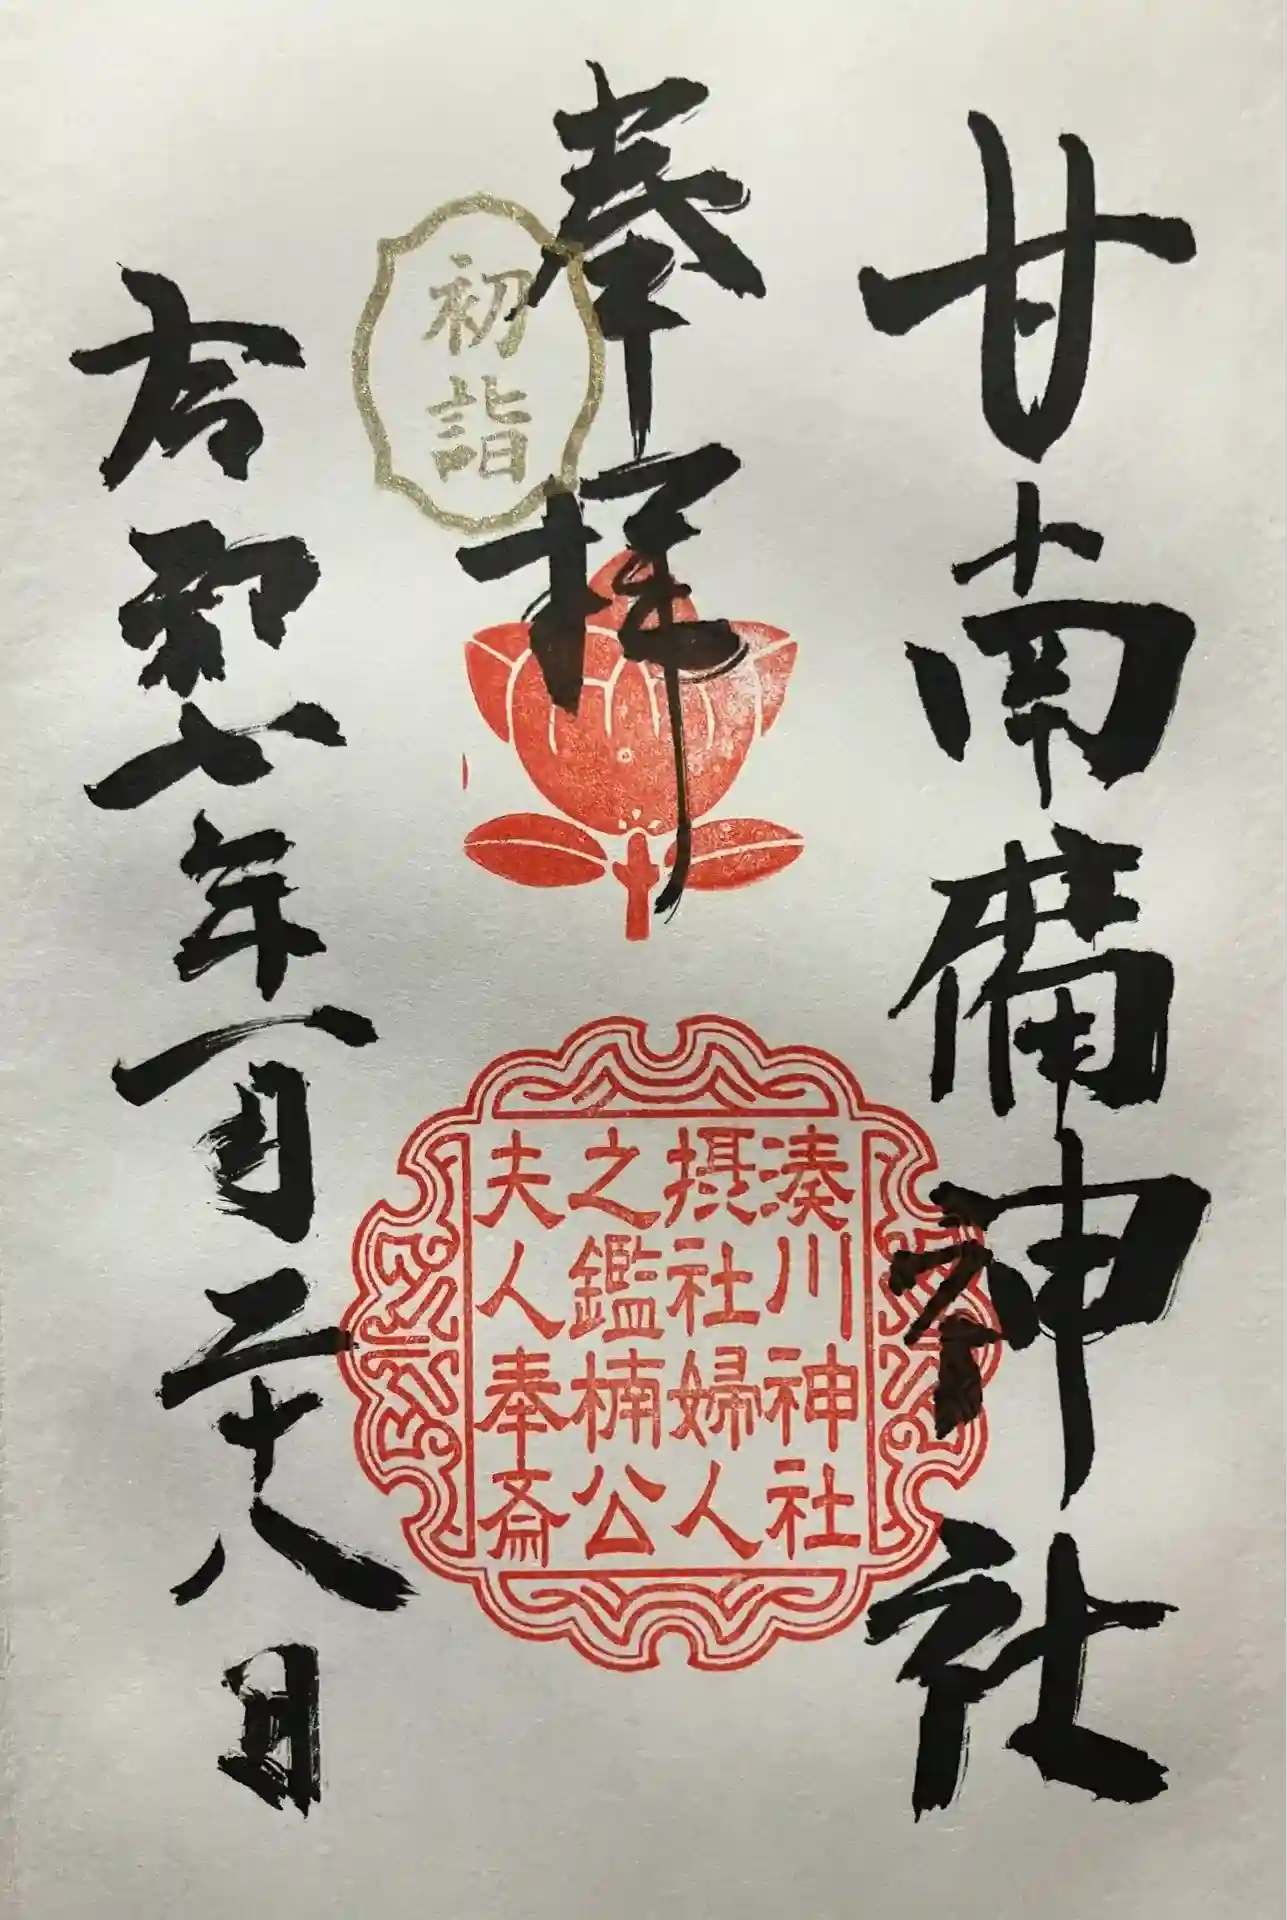 甘南備神社
奉拝
初詣
湊川神社
摂社婦人
之鑑楠公
夫人奉斎
令和七年一月二十八日